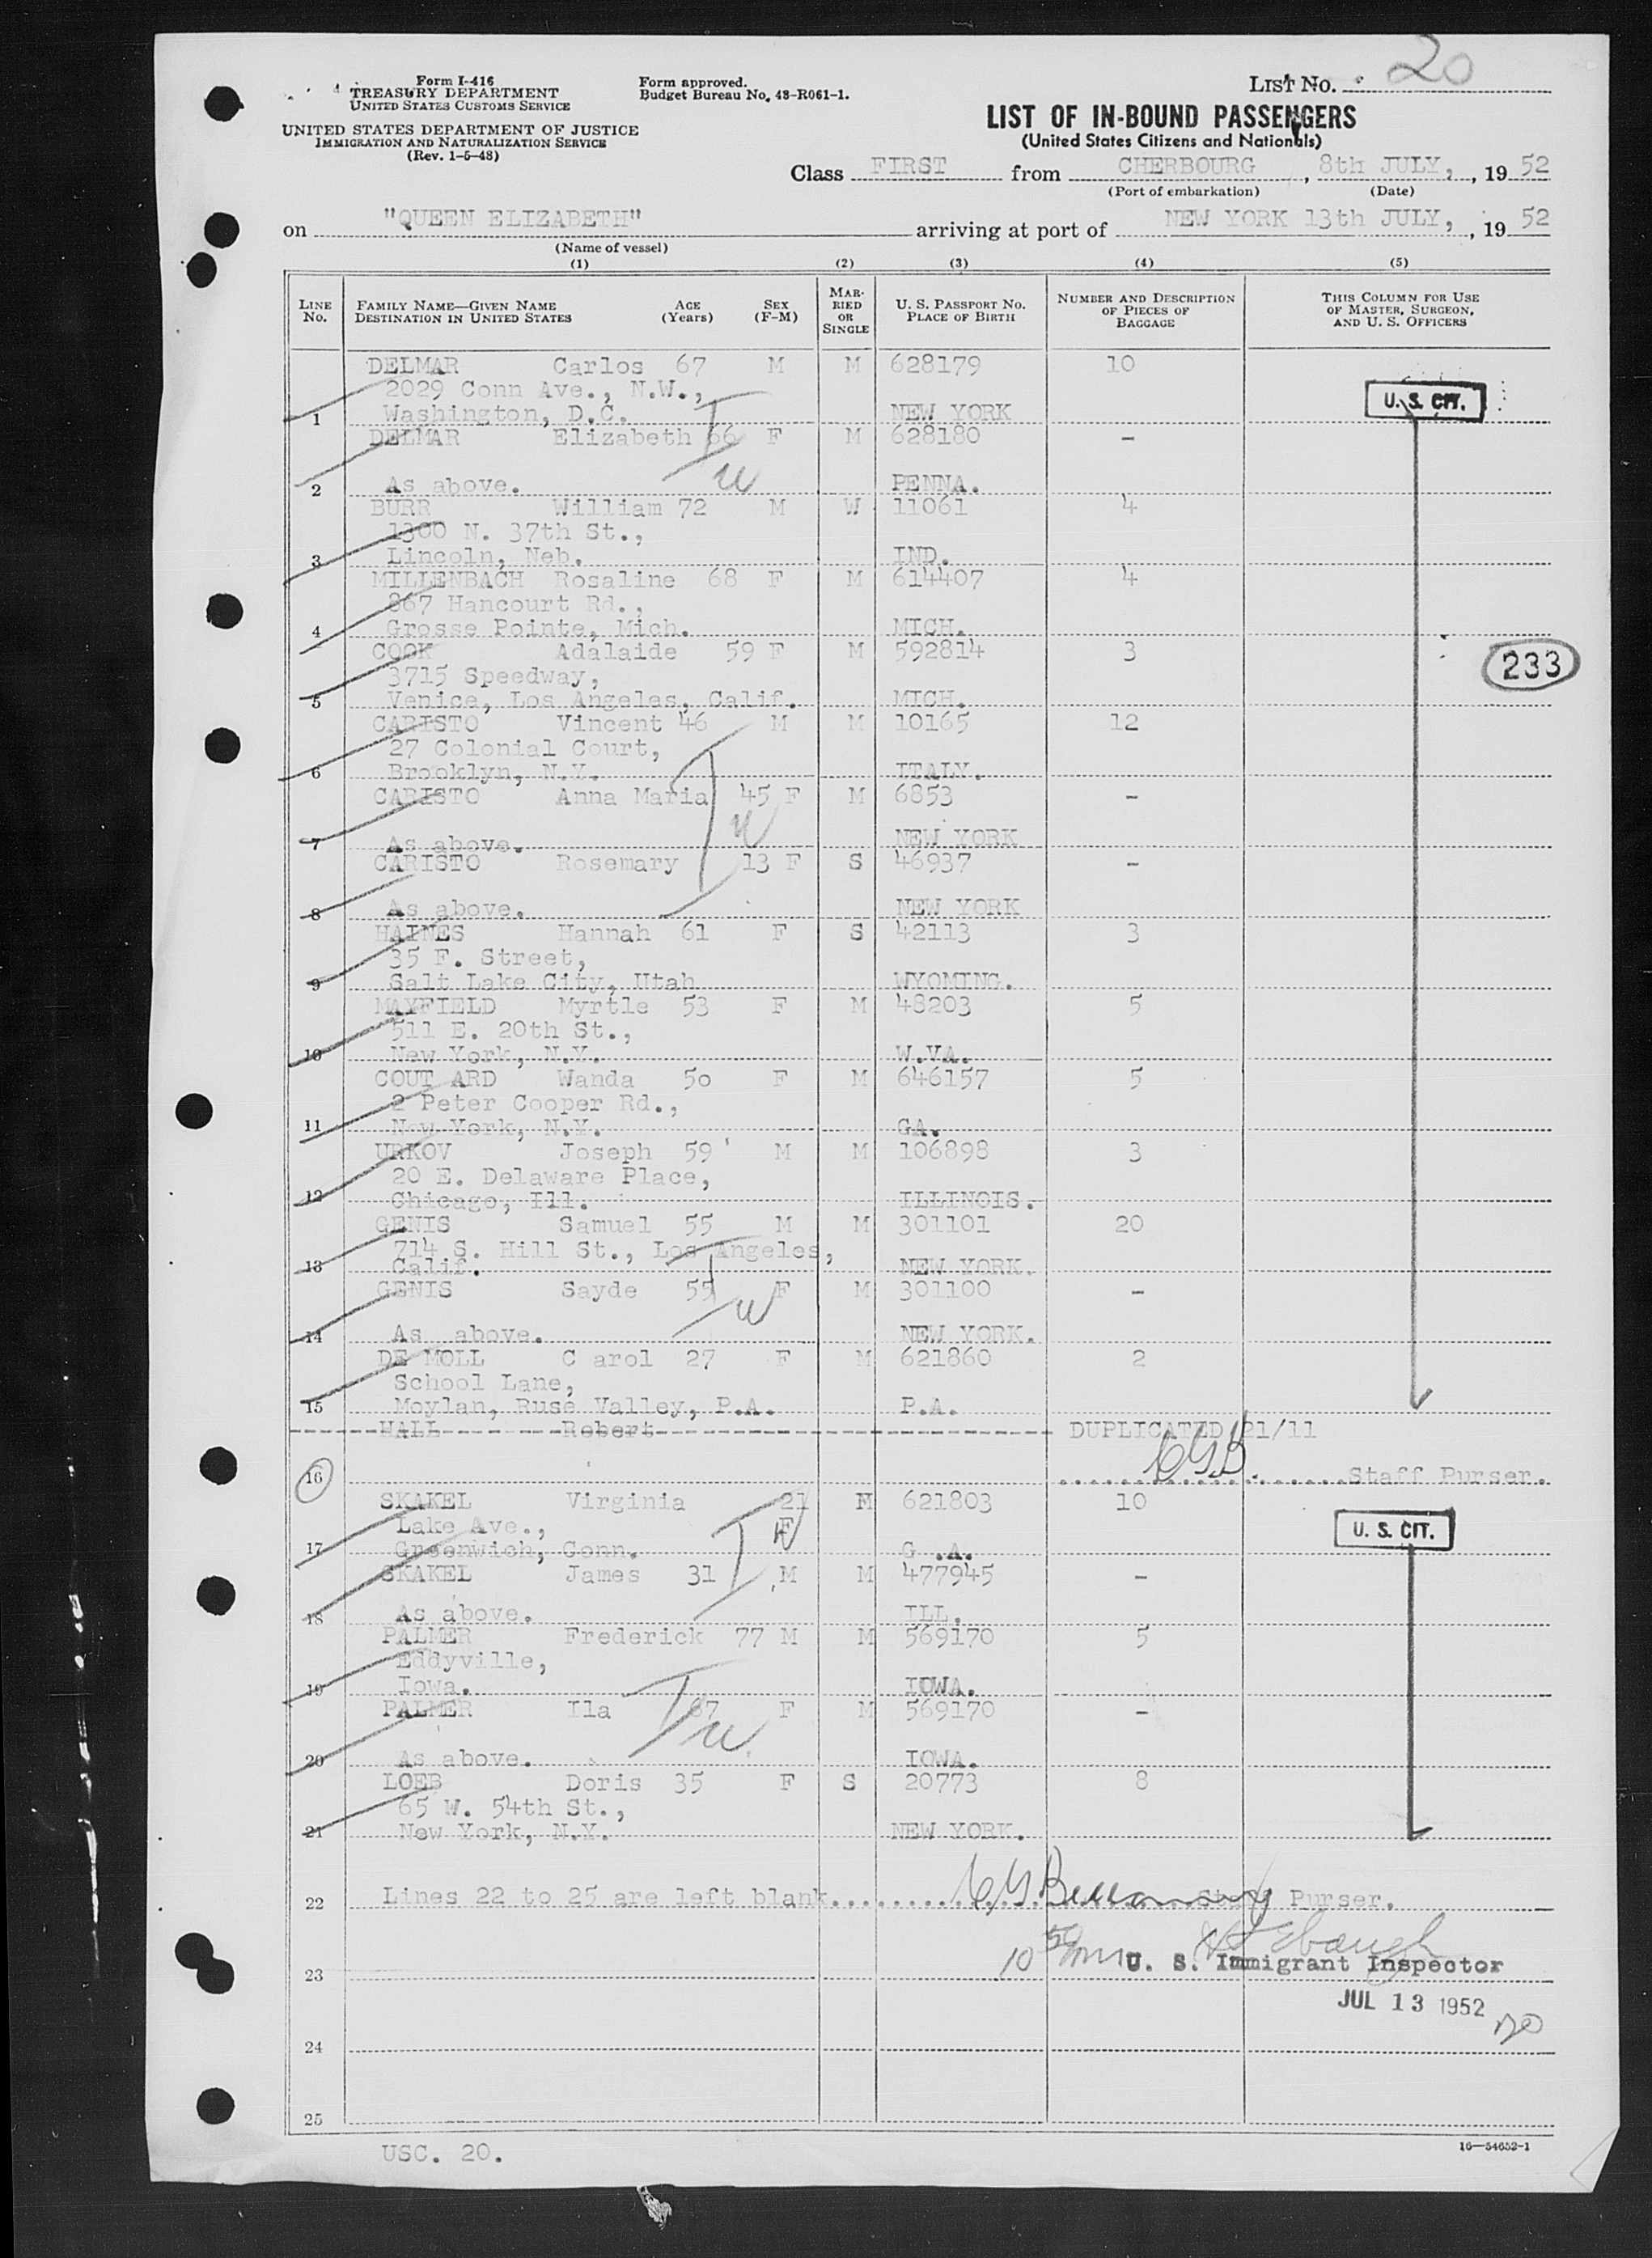 20
Form I-416
TREASURY DEPARTMENT
UNITED STATES CUSTOMS SERVICE
UNITED STATES DEPARTMENT OF JUSTICE
IMMIGRATION AND NATURALIZATION SERVICE
(Rev. 1-5-48)
Form approved.
Budget Bureau No. 43-R061-1.
LIST No.
LIST OF IN-BOUND PASSENGERS
(United States Citizens and Nationals)
Class FIRST from CHERBOURG, 8th JULY, , 19 52
(Port of embarkation) (Date)
on "QUEEN ELIZABETH" arriving at port of NEW YORK 13th JULY, , 19 52
(Name of vessel)
(1) (2) (3) (4) (5)
LINE No. FAMILY NAME—GIVEN NAME DESTINATION IN UNITED STATES AGE (Years) SEX (F-M) MARRIED OR SINGLE U. S. PASSPORT No. PLACE OF BIRTH NUMBER AND DESCRIPTION OF PIECES OF BAGGAGE THIS COLUMN FOR USE OF MASTER, SURGEON, AND U. S. OFFICERS
DELMAR Carlos 67 M M 628179 10
2029 Conn Ave., N.W.,
U. S. CIT.
1 Washington, D.C. NEW YORK
DELMAR Elizabeth 66 F M 628180 -
2 As above. PENNA.
BURR William 72 M W 11061 4
1300 N. 37th St.,
3 Lincoln, Neb. IND.
MILLENBACH Rosaline 68 F M 614407 4
867 Hancourt Rd.,
4 Grosse Pointe, Mich. MICH.
COOK Adalaide 59 F M 592814 3
233
3715 Speedway,
5 Venice, Los Angeles, Calif. MICH.
CARISTO Vincent 46 M M 10165 12
27 Colonial Court,
6 Brooklyn, N.Y. ITALY.
CARISTO Anna Maria 45 F M 6853 -
7 As above. NEW YORK
CARISTO Rosemary 13 F S 46937 -
8 As above. NEW YORK
HAINES Hannah 61 F S 42113 3
35 F. Street,
9 Salt Lake City, Utah WYOMING.
MAYFIELD Myrtle 53 F M 48203 5
511 E. 20th St.,
10 New York, N.Y. W.VA.
COUT ARD Wanda 50 F M 646157 5
2 Peter Cooper Rd.,
11 New York, N.Y. GA.
URKOV Joseph 59 M M 106898 3
20 E. Delaware Place,
12 Chicago, Ill. ILLINOIS.
GENIS Samuel 55 M M 301101 20
714 S. Hill St., Los Angeles,
13 Calif. NEW YORK.
GENIS Sayde 55 F M 301100 -
14 As above. NEW YORK.
DE MOLL C arol 27 F M 621860 2
School Lane,
15 Moylan, Ruse Valley, P.A. P.A.
HALL Robert DUPLICATED 21/11
16 Staff Purser.
SKAKEL Virginia 21 M 621803 10
Lake Ave., F
U. S. CIT.
17 Greenwich, Conn. G .A.
SKAKEL James 31 M M 477945 -
18 As above. ILL.
PALMER Frederick 77 M M 569170 5
Eddyville,
19 Iowa. IOWA.
PALMER Ila 67 F M 569170 -
20 As above. IOWA.
LOEB Doris 35 F S 20773 8
65 W. 54th St.,
21 New York, N.Y. NEW YORK.
22 Lines 22 to 25 are left blank. Staff Purser.
U. S. Immigrant Inspector
23
JUL 13 1952
24
25
USC. 20.
16—54652-1